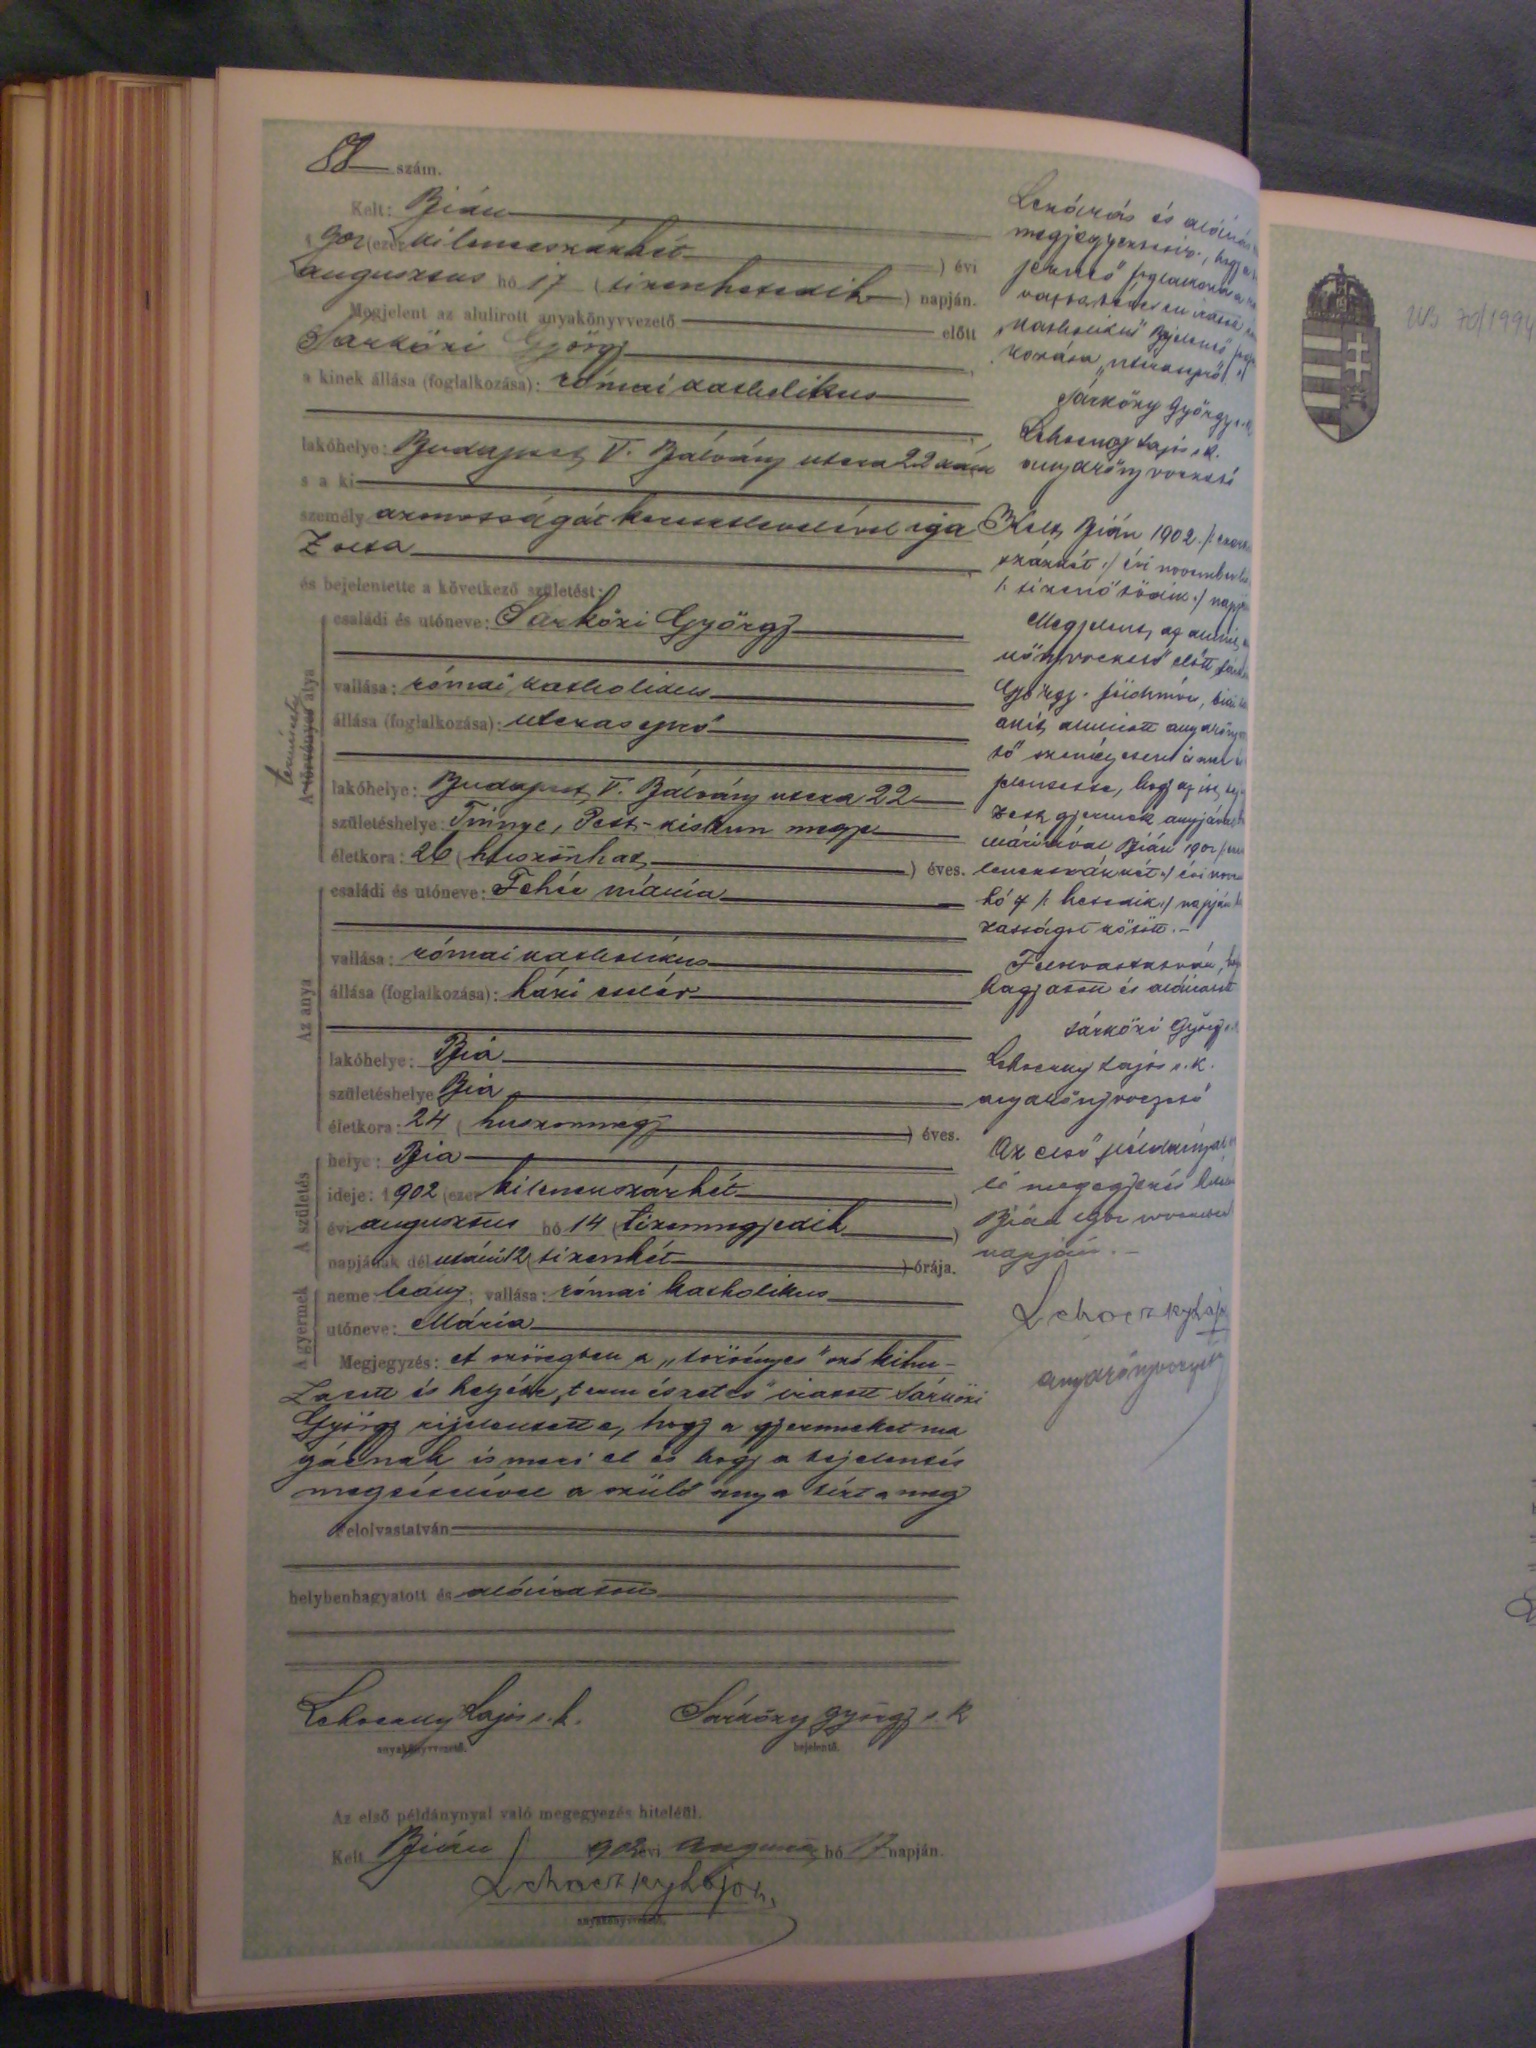 88 szám.
Kelt: Bián
1902 (ezer kilenczszázkét ) évi
augusztus hó 17 ( tizenhetedik ) napján.
Megjelent az alulirott anyakönyvvezető előtt
Sárközi György
a kinek állása (foglalkozása): római katholikus
lakóhelye: Budapest, V. Bálvány utcza 22 szám
s a ki
személy azonosságát keresztlevelével iga
zolta
és bejelentette a következő születést:
A törvényes atya
természetes
családi és utóneve: Sarközi György
vallása: római katholikus
állása (foglalkozása): utczaseprő
lakóhelye: Budapest, V. Bálvány utcza 22
születéshelye Tinnye, Pest-kiskun megye
életkora: 26 ( huszonhat ) éves.
Az anya
családi és utóneve: Fehér mária
vallása: római katholikus
állása (foglalkozása): házi cseléd
lakóhelye: Bia
születéshelye Bia
életkora: 24 ( huszonnegy ) éves.
A születés
helye: Bia
ideje: 1902 (ezer kilenczszázkét )
évi augusztus hó 14 ( tizennegyedik )
napjának dél utáni 12 ( tizenkét ) órája.
A gyermek
neme: leány; vallása: római katholikus
utóneve: Mária
Megjegyzés: A szövegben a „törvényes" szó kihu-
zatott és helyébe „természetes" iratott Sárközi
György kijelentette, hogy a gyermeket ma
gáénak ismeri el és hogy a bejelentés
megtételével a szülő anya bízta meg
Felolvastatván
helybenhagyatott és aláiratott
Lehoczky Lajos s. k.
anyakönyvvezető.
Sárközy György s. k
bejelentő.
Az első példánynyal való megegyezés hiteléül.
Kelt Bián 1902 évi augusztus hó 17 napján.
Lehoczky Lajos
anyakönyvvezető.
Lezárás és aláirás
megjegyeztetik, hogy
jelentő" foglalkozása
„katholikus" Bejelentő
kozása „utczaseprő"
Sárközy György s. k.
Lehoczky Lajos s. k.
anyakönyvvezető
Kelt, Bián 1902. /:
százkét :/ évi november
/: tizenötödik :/ napján
Megjelent, az alulírt
könyvvezető előtt
György földmíves, biai
akit, alulirott anyakönyv
tő személyesen ismer
jelentette, hogy az itt
zett gyermek anyjával
máriával Bián 1902 /:
lenczszázkét :/ évi nov
hó 7 /: hetedik :/ napján
zasságot kötött. –
Felolvastatván,
hagyatott és aláiratott
Sárközi György
Lehoczky Lajos s. k.
anyakönyvvezető
Az első példánynyal
ló megegyezés
Bián 1902 november
napján. –
Lehoczky Lajos
anyakönyvvezető
70/1994